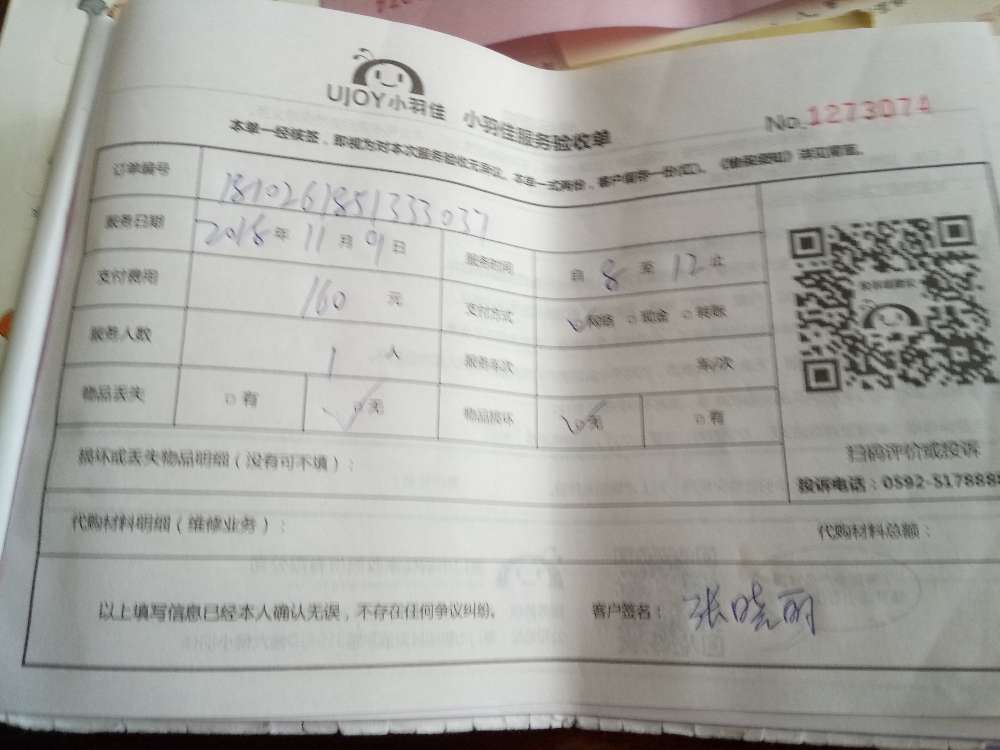 UJOY小羽佳 小羽佳服务验收单
No.1273074
本单一经核签，即视为对本次服务验收无异议。本单一式两份，客户留存一份(红)。
订单编号 1810261851333037
服务日期 2018年11月9日 服务时间 自8至12止
支付费用 160元 支付方式 网络 现金 转账
服务人数 1人 服务车次 车/次
物品丢失 有 无 物品损坏 无 有
扫码评价或投诉
损坏或丢失物品明细（没有可不填）：
投诉电话：0592-5178888
代购材料明细（维修业务）： 代购材料总额：
以上填写信息已经本人确认无误，不存在任何争议纠纷。 客户签名：张晓丽